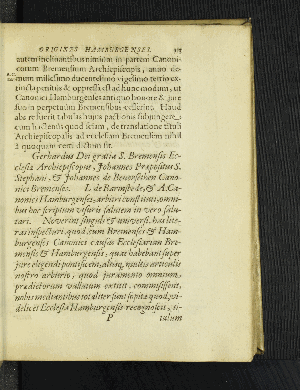 ORIGINES HAMBURGENSES.
autem inclinantibus nimium in partem Canoni-
corum Bremensium Archiepiscopis, anno de-
mum millesimo ducentesimo vigesimo tertio ex-
tincta penitus & oppressa est ad hunc modum, ut
Canonici Hamburgenses antiquo honore & jure
suo in perpetuum Bremensibus cesserint. Haud
abs re fuerit tabulas hujus pactionis subjungere,
cum hactenus quod sciam, de translatione tituli
Archiepiscopalis ad ecclesiam Bremensem nihil
à quoquam certi dictum sit.
Gerhardus Dei gratia S. Bremensis Ec-
clesiæ Archiepiscopus, Johannes Præpositus S.
Stephani, & Johannes de Beverschen Cano-
nici Bremenses. I. de Barmstede, & A. Ca-
nonici Hamburgenses, arbitri constituti, omni-
bus hoc scriptum visuris salutem in vero salu-
tari. Noverint singuli & universi, has lite-
ras inspecturi, quod cum Bremensis & Ham-
burgensis Canonici causas Ecclesiarum Bre-
mensis & Hamburgensis, quas habebant super
jure eligendi pontificem, aliisque multis articulis
nostro arbitrio, quod juramento omnium
prædictorum vallatum extitit, commisissent,
nobis mediantibus totaliter sunt sopita quod vi-
delicet Ecclesia Hamburgensis recognoscit, ti-
P tulum